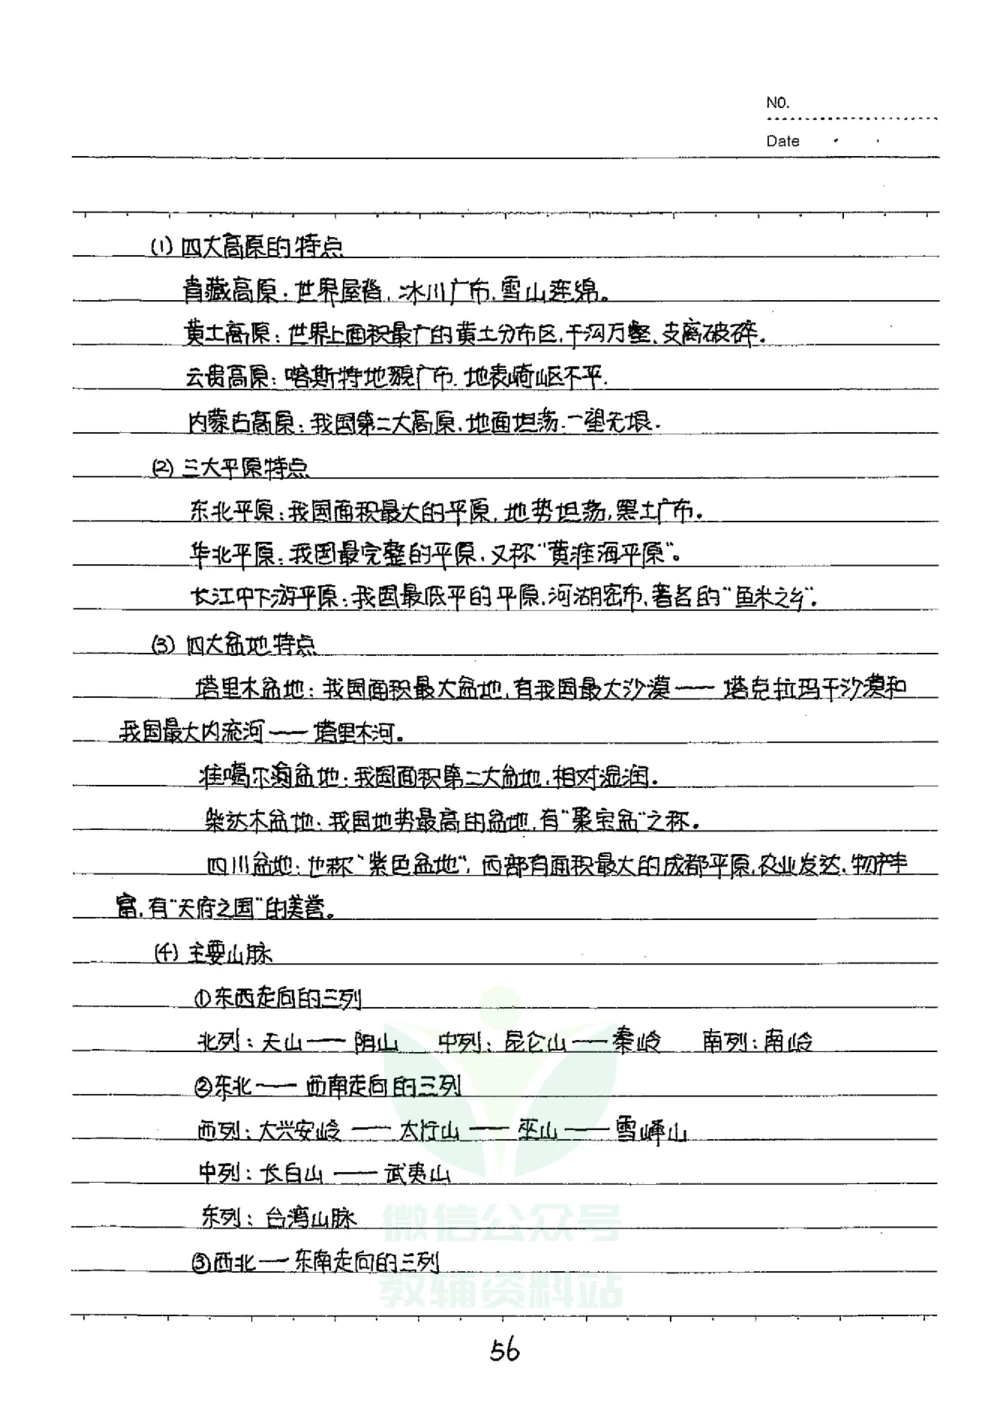 NO.
Date
(1) 四大高原的特点
青藏高原:世界屋脊,冰川广布,雪山连绵。
黄土高原:世界上面积最广的黄土分布区,千沟万壑、支离破碎.
云贵高原:喀斯特地貌广布.地表崎岖不平.
内蒙古高原:我国第二大高原,地面坦荡.一望无垠.
(2) 三大平原特点
东北平原:我国面积最大的平原,地势坦荡,黑土广布。
华北平原:我国最完整的平原,又称“黄淮海平原”。
长江中下游平原:我国最低平的平原,河湖密布,著名的“鱼米之乡”.
(3) 四大盆地特点
塔里木盆地:我国面积最大盆地,有我国最大沙漠——塔克拉玛干沙漠和
我国最大内流河——塔里木河。
准噶尔盆地:我国面积第二大盆地,相对湿润.
柴达木盆地:我国地势最高的盆地,有“聚宝盆”之称。
四川盆地:也称“紫色盆地”,西部有面积最大的成都平原,农业发达,物产丰
富,有“天府之国”的美誉。
(4) 主要山脉
①东西走向的三列
北列:天山——阴山 中列:昆仑山——秦岭 南列:南岭
②东北——西南走向的三列
西列:大兴安岭——太行山——巫山——雪峰山
中列:长白山——武夷山
东列:台湾山脉
微信公众号
③西北—东南走向的三列
教辅资料站
56